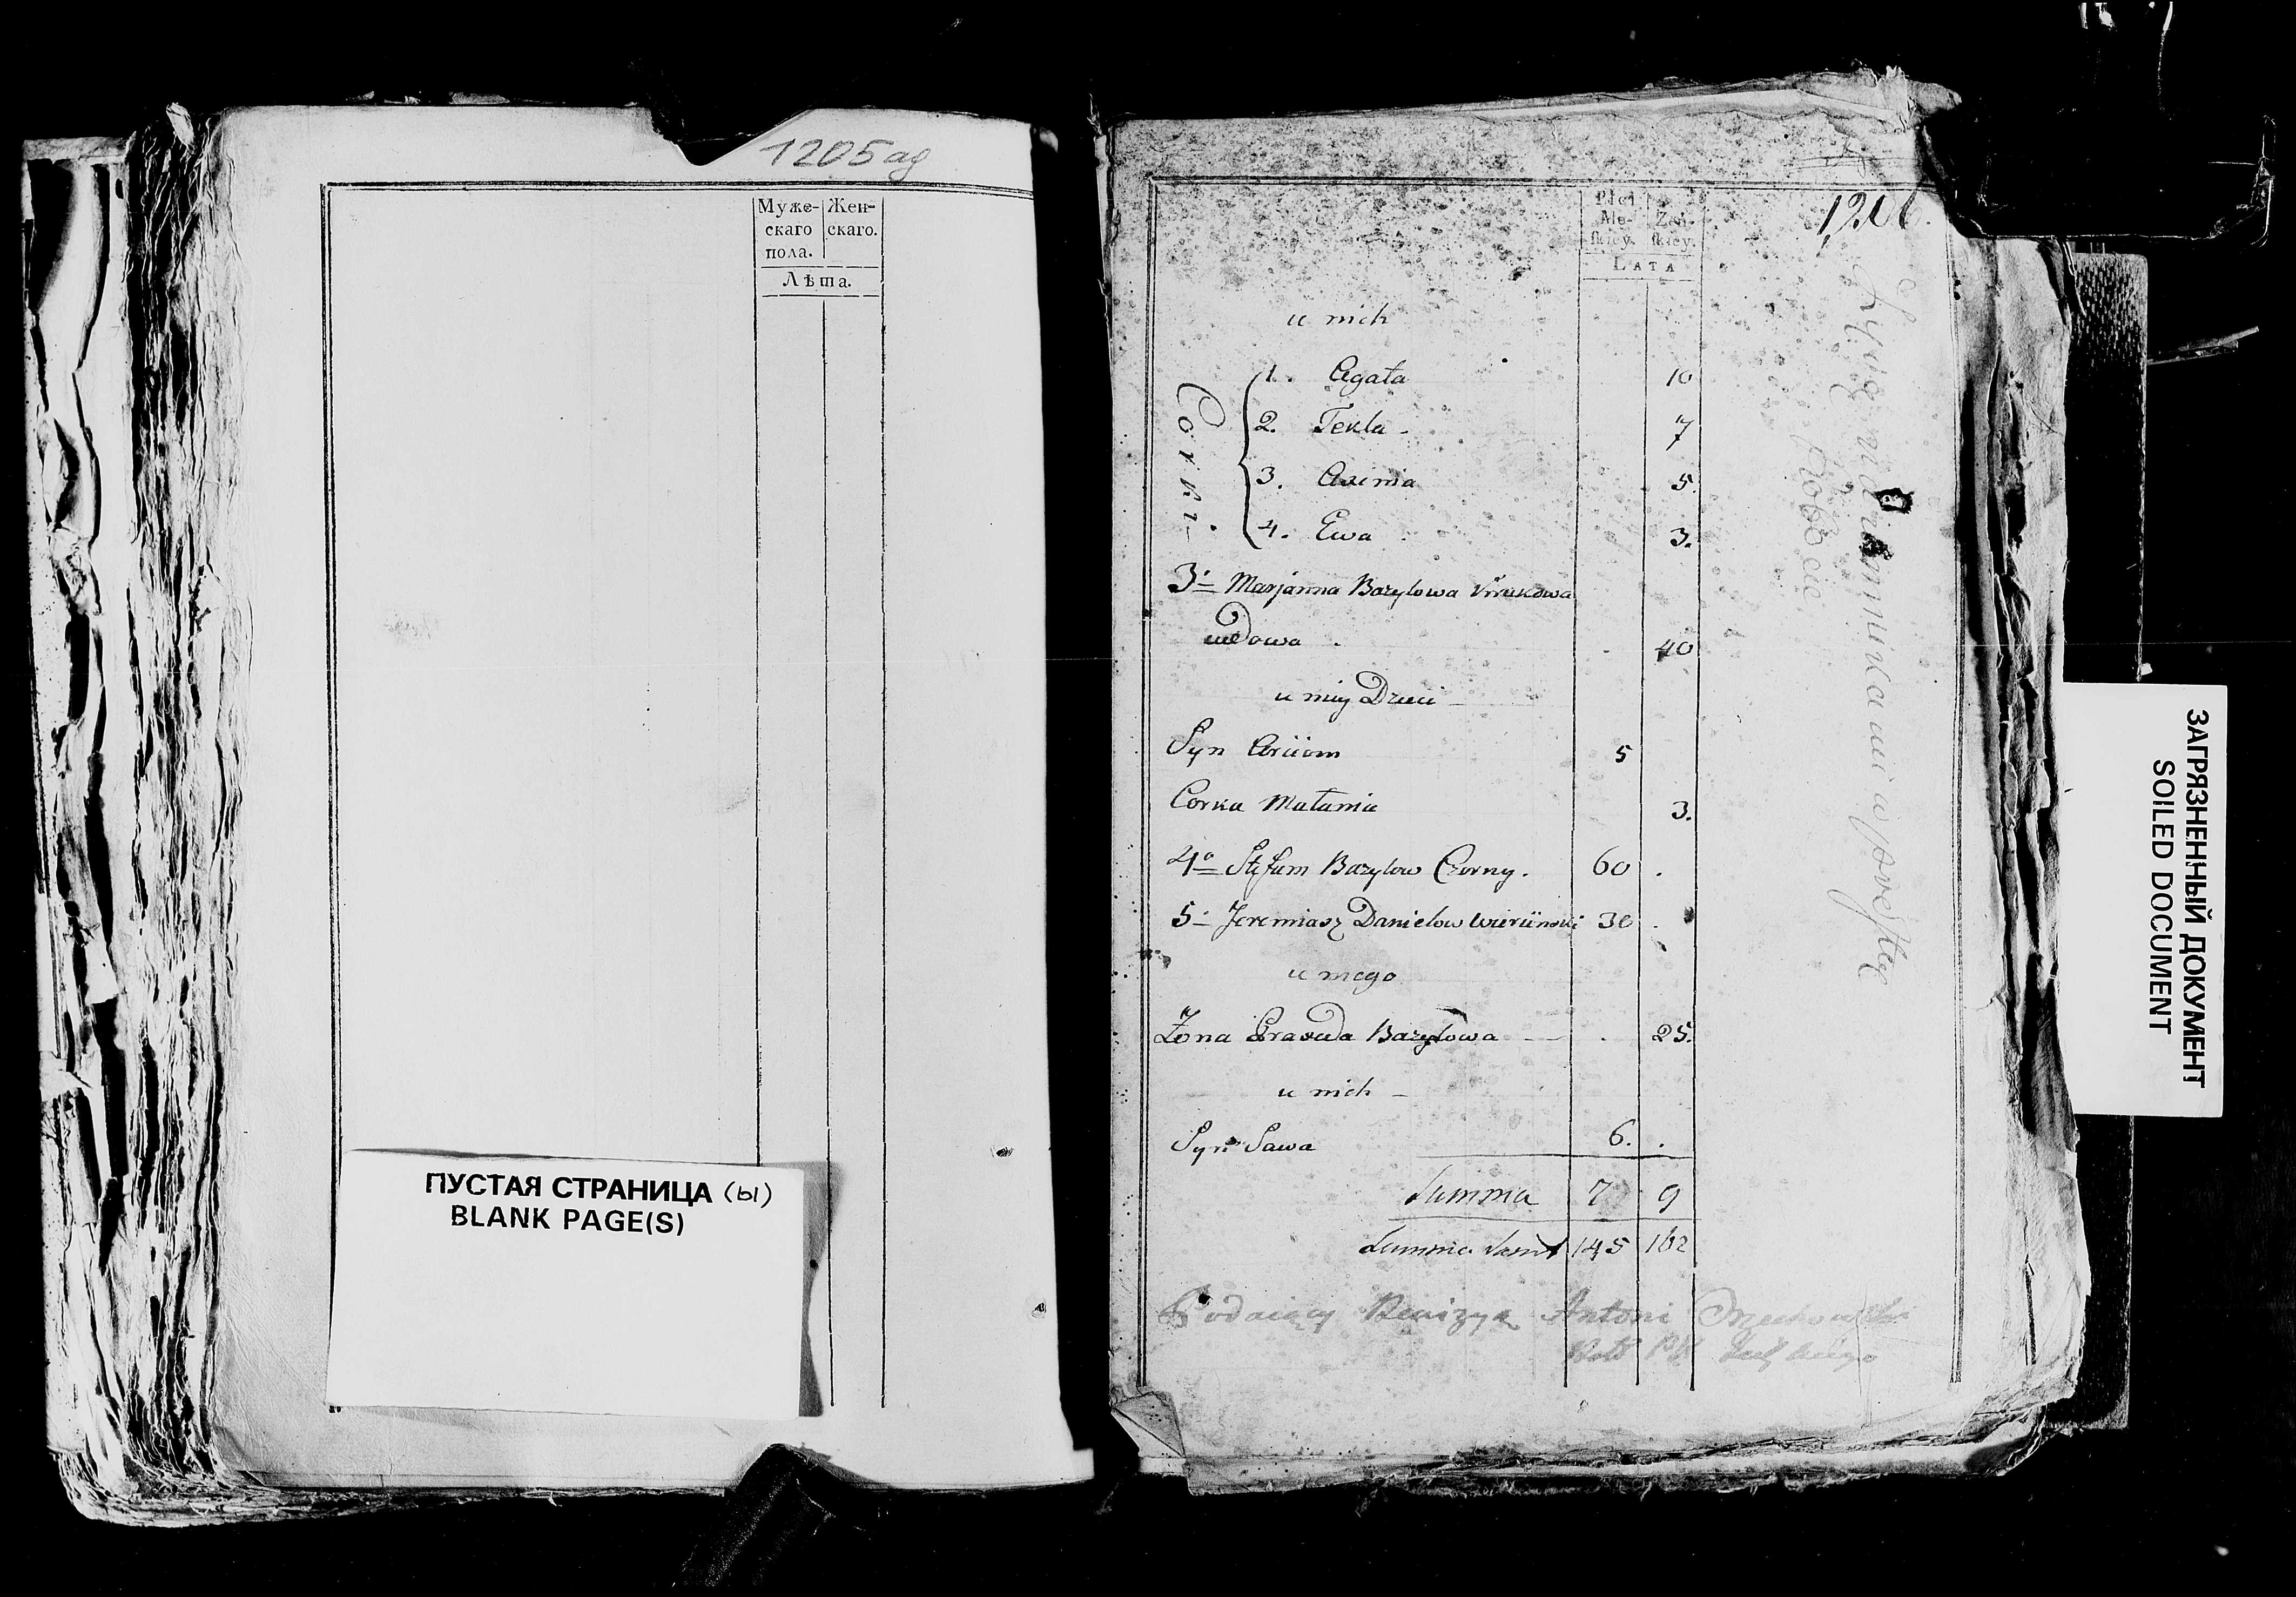 1205
Муже- Жен-
скаго скаго.
пола.
Лѣта.
ПУСТАЯ СТРАНИЦА (ы)
BLANK PAGE(S)
1206.
Płci
Mę- Żeń-
skiey. skiey.
LATA
u nich
Corki
1. Agata 10
2. Tekla 7
3. Axinia 5.
4. Ewa 3.
3. Marjanna Bazylowa
wdowa 40
u niey Dzieci
Syn 5
Corka Matania 3.
4o Stefam Bazylow Czorny. 60 .
5 Jeremiasz Danielow 30 .
u niego
Żona Bazylowa 25.
u nich
Syn Sawa 6. .
Summa 7 9
Summa 145 162
Podaiący Rewizyą Antoni
ЗАГРЯЗНЕННЫЙ ДОКУМЕНТ
SOILED DOCUMENT